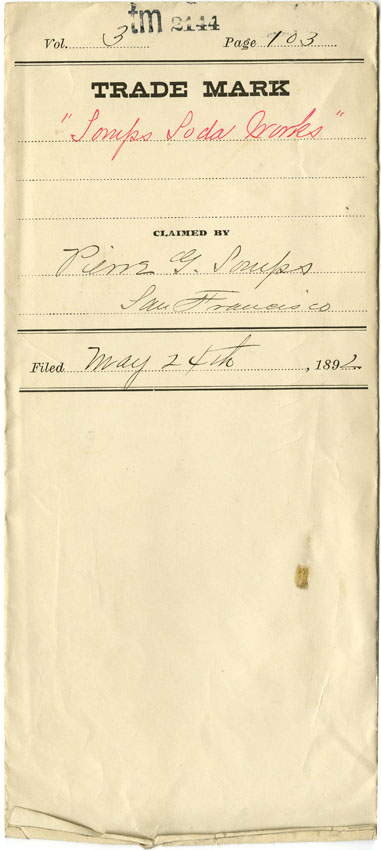 tm 2144
Vol. 3 Page 103
TRADE MARK
"Somps Soda Works"
CLAIMED BY
Pierre G. Somps
San Francisco
Filed May 24th, 1892